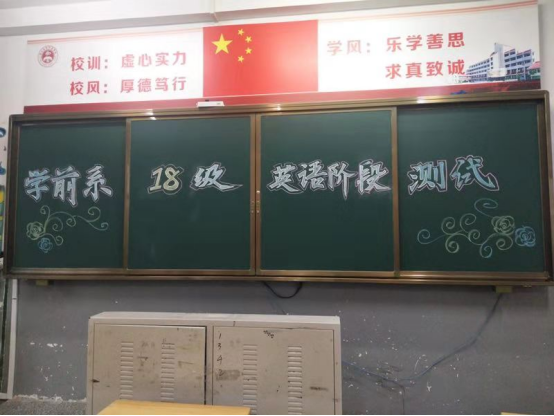 校训：虚心实力
校风：厚德笃行
学风：乐学善思
求真致诚
学前系 18级 英语阶段测试